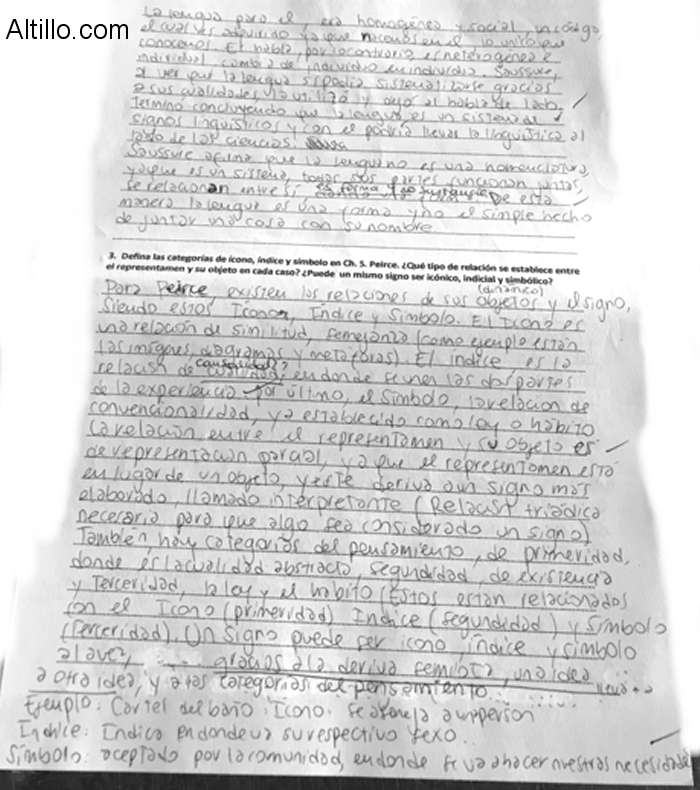 Altillo.com
La lengua para el, era homogénea y social, un código,
el cual es adquirido ya que nacemos en el lo único que
conocemos. El habla, por lo contrario, es heterogénea e
individual cambia de individuo en individuo. Saussure,
al ver que la lengua si podia sistematizarse gracias
a sus cualidades, la utilizó y dejó al habla de lado.
Terminó concluyendo que la lengua, es un sistema de
signos lingüísticos y con el podría llevar la lingüística al
de las ciencias!
Saussure afirma que la lengua no es una nomenclatura,
ya que es un sistema, todas sus partes funcionan juntas,
se relacionan entre sí es forma y no sustancia De esta
manera la lengua es una forma y no el simple hecho
de juntar una cosa con su nombre
3. Defina las categorías de ícono, índice y símbolo en Ch. S. Peirce. ¿Qué tipo de relación se establece entre
el representamen y su objeto en cada caso? ¿Puede un mismo signo ser icónico, indicial y simbólico?
(dinámico)
Para Peirce, existen las relaciones de sus objetos y el signo,
siendo estos Icono, Indice y Simbolo. El Icono es
una relación de similitud, semejanza (como ejemplo están
las imágenes, diagramas y metáforas). El índice, es la
causalidad??
relación de cualidad, en donde se unen las dos partes
de la experiencia. Por último, el Simbolo, la relación de
convencionalidad, ya establecido como ley o hábito
La relación entre el representamen y su objeto es
de representación parcial, ya que el representamen está
en lugar de un objeto, y este deriva a un signo más
elaborado, llamado interpretante (Relación triádica
necesaria para que algo sea considerado un signo)
También, hay categorías del pensamiento, de primeridad,
donde es la cualidad abstracta, segundidad, de existencia
y Terceridad, la ley y el hábito (Estos están relacionados
con el Icono (primeridad) Indice (segundidad) y Simbolo
(Terceridad). Un signo puede ser icono, índice y simbolo
a la vez, gracias a la deriva semiota, una idea lleva
a otra idea, y a las categorías del pensamiento
Ejemplo: Cartel del baño: Icono: Se asemeja a un person
Indice: Indica en donde va su respectivo sexo.
Símbolo: aceptado por la comunidad, en donde se va a hacer nuestras necesidades